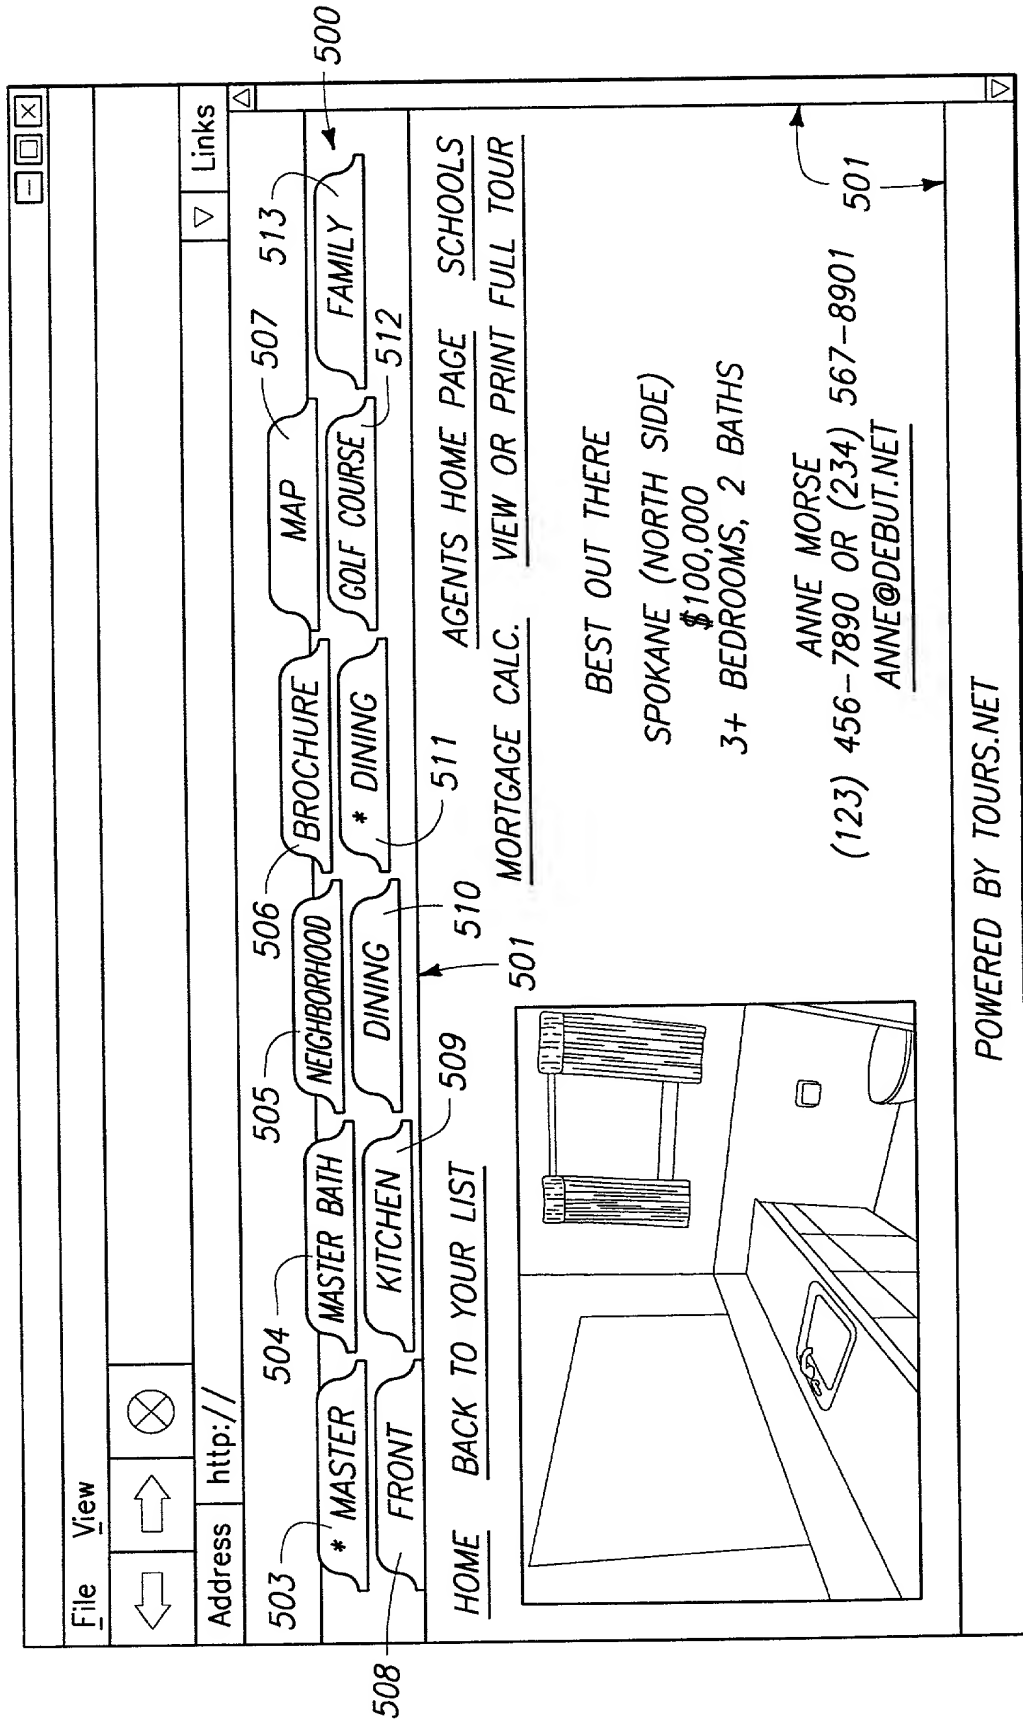 File View
Address http:// Links
500
503 504 505 506 507 513
* MASTER MASTER BATH NEIGHBORHOOD BROCHURE MAP
FRONT KITCHEN DINING * DINING GOLF COURSE FAMILY
508 509 510 511 512
501
HOME BACK TO YOUR LIST AGENTS HOME PAGE SCHOOLS
MORTGAGE CALC. VIEW OR PRINT FULL TOUR
BEST OUT THERE
SPOKANE (NORTH SIDE)
$100,000
3+ BEDROOMS, 2 BATHS
ANNE MORSE
(123) 456-7890 OR (234) 567-8901
ANNE@DEBUT.NET
501
POWERED BY TOURS.NET